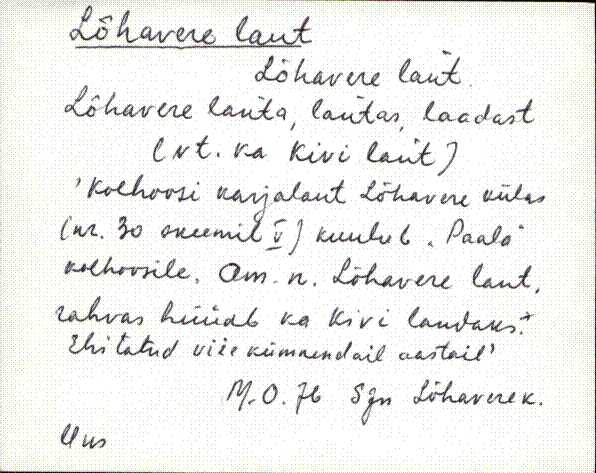 Lõhavere laut
Lõhavere laut.
Lõhavere lauta, lautas, laadast
(vt. ka Kivi laut)
'Kolhoosi karjalaut Lõhavere külas
(nr. 30 skeemil V) kuulub "Paala"
kolhoosile. Am. n. Lõhavere laut,
rahvas hüüab ka Kivi laudaks.
Ehitatud viiekümnendail aastail'
M.O. 76 Sjn Lõhavere k.
Uus